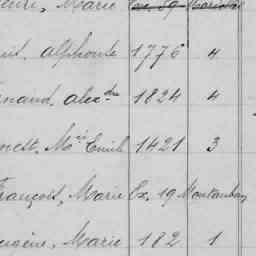 enri, Marie Ex. 19 Marivaux
uis. Alphonse 1776 4
rnand. Alex.dre 1824 4
nest. M.ie Emile 1421 3
François, Marie Ex. 19 Montauban
ugène, Marie 182 1